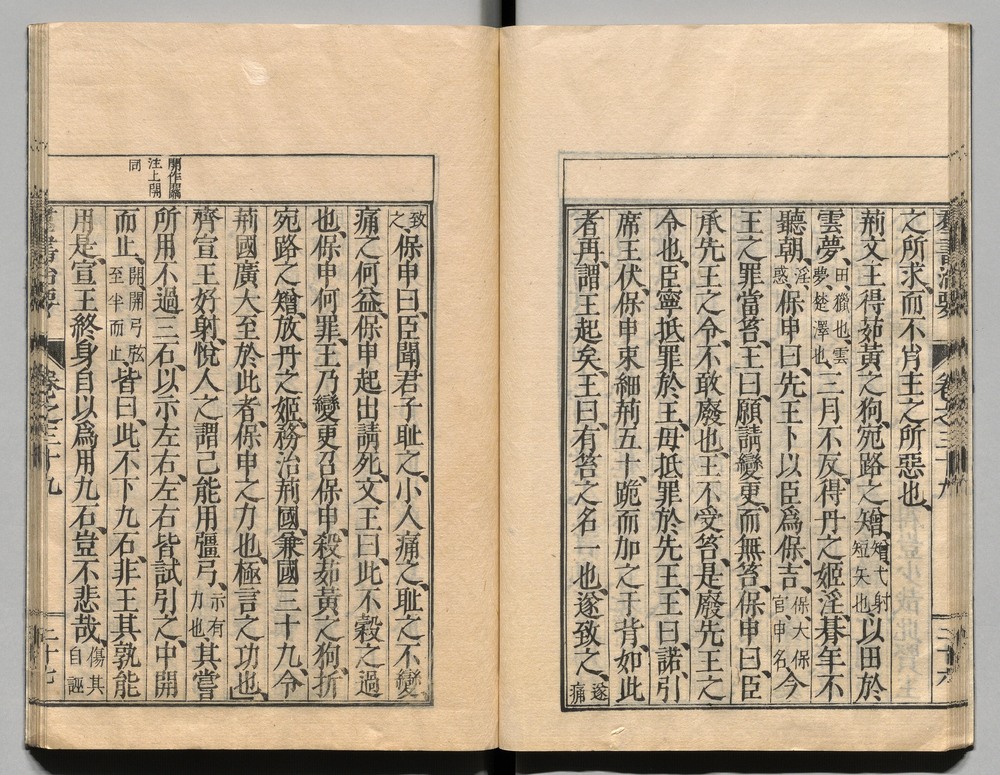 羣書治要 卷之三十九 二十六
之所求、而不肖主之所惡也、
荊文王得茹黃之狗、宛路之矰、矰弋射短矢也、以田於
雲夢、田獵也、雲夢、楚澤也、三月不反、得丹之姬、淫、朞年不
聽朝、淫惑、保申曰、先王卜以臣爲保、吉、保、大保官、申名、今
王之罪當笞、王曰、願請變更、而無笞、保申曰、臣
承先王之令、不敢廢也、王不受笞、是廢先王之
令也、臣寧抵罪於王、毋抵罪於先王、王曰、諾、引
席王伏、保申束細荊五十、跪而加之于背、如此
者再、謂王起矣、王曰、有笞之名一也、遂致之、遂痛
致之保申曰、臣聞君子耻之、小人痛之、耻之不變、
痛之何益、保申起出請死、文王曰、此不穀之過
也、保申何罪、王乃變更、召保申、殺茹黃之狗、折
宛路之矰、放丹之姬、務治荊國、兼國三十九、令
荊國廣大至於此者、保申之力也、極言之功也、
齊宣王好射、悅人之謂己能用彊弓、示有力也、其嘗
所用不過三石、以示左右、左右皆試引之、中開
而止、開開弓弦至半而止皆曰、此不下九石、非王其孰能
用是、宣王終身自以爲用九石、豈不悲哉、傷其自誣
羣書治要 卷之三十九 二十七
開作關
注上開
同